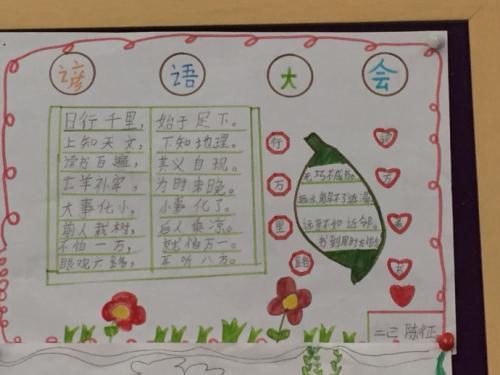 谚 语 大 会
日行千里， 始于足下。
上知天文， 下知地理。
读书百遍， 其义自现。
亡羊补牢， 为时未晚。
大事化小， 小事化了。
前人栽树， 后人乘凉。
不怕一万， 就怕万一。
眼观六路， 耳听八方。
行
万
里
路
无巧不成书。
远水解不了近渴。
远亲不如近邻。
书到用时方恨少
读
万
卷
书
二三 陈